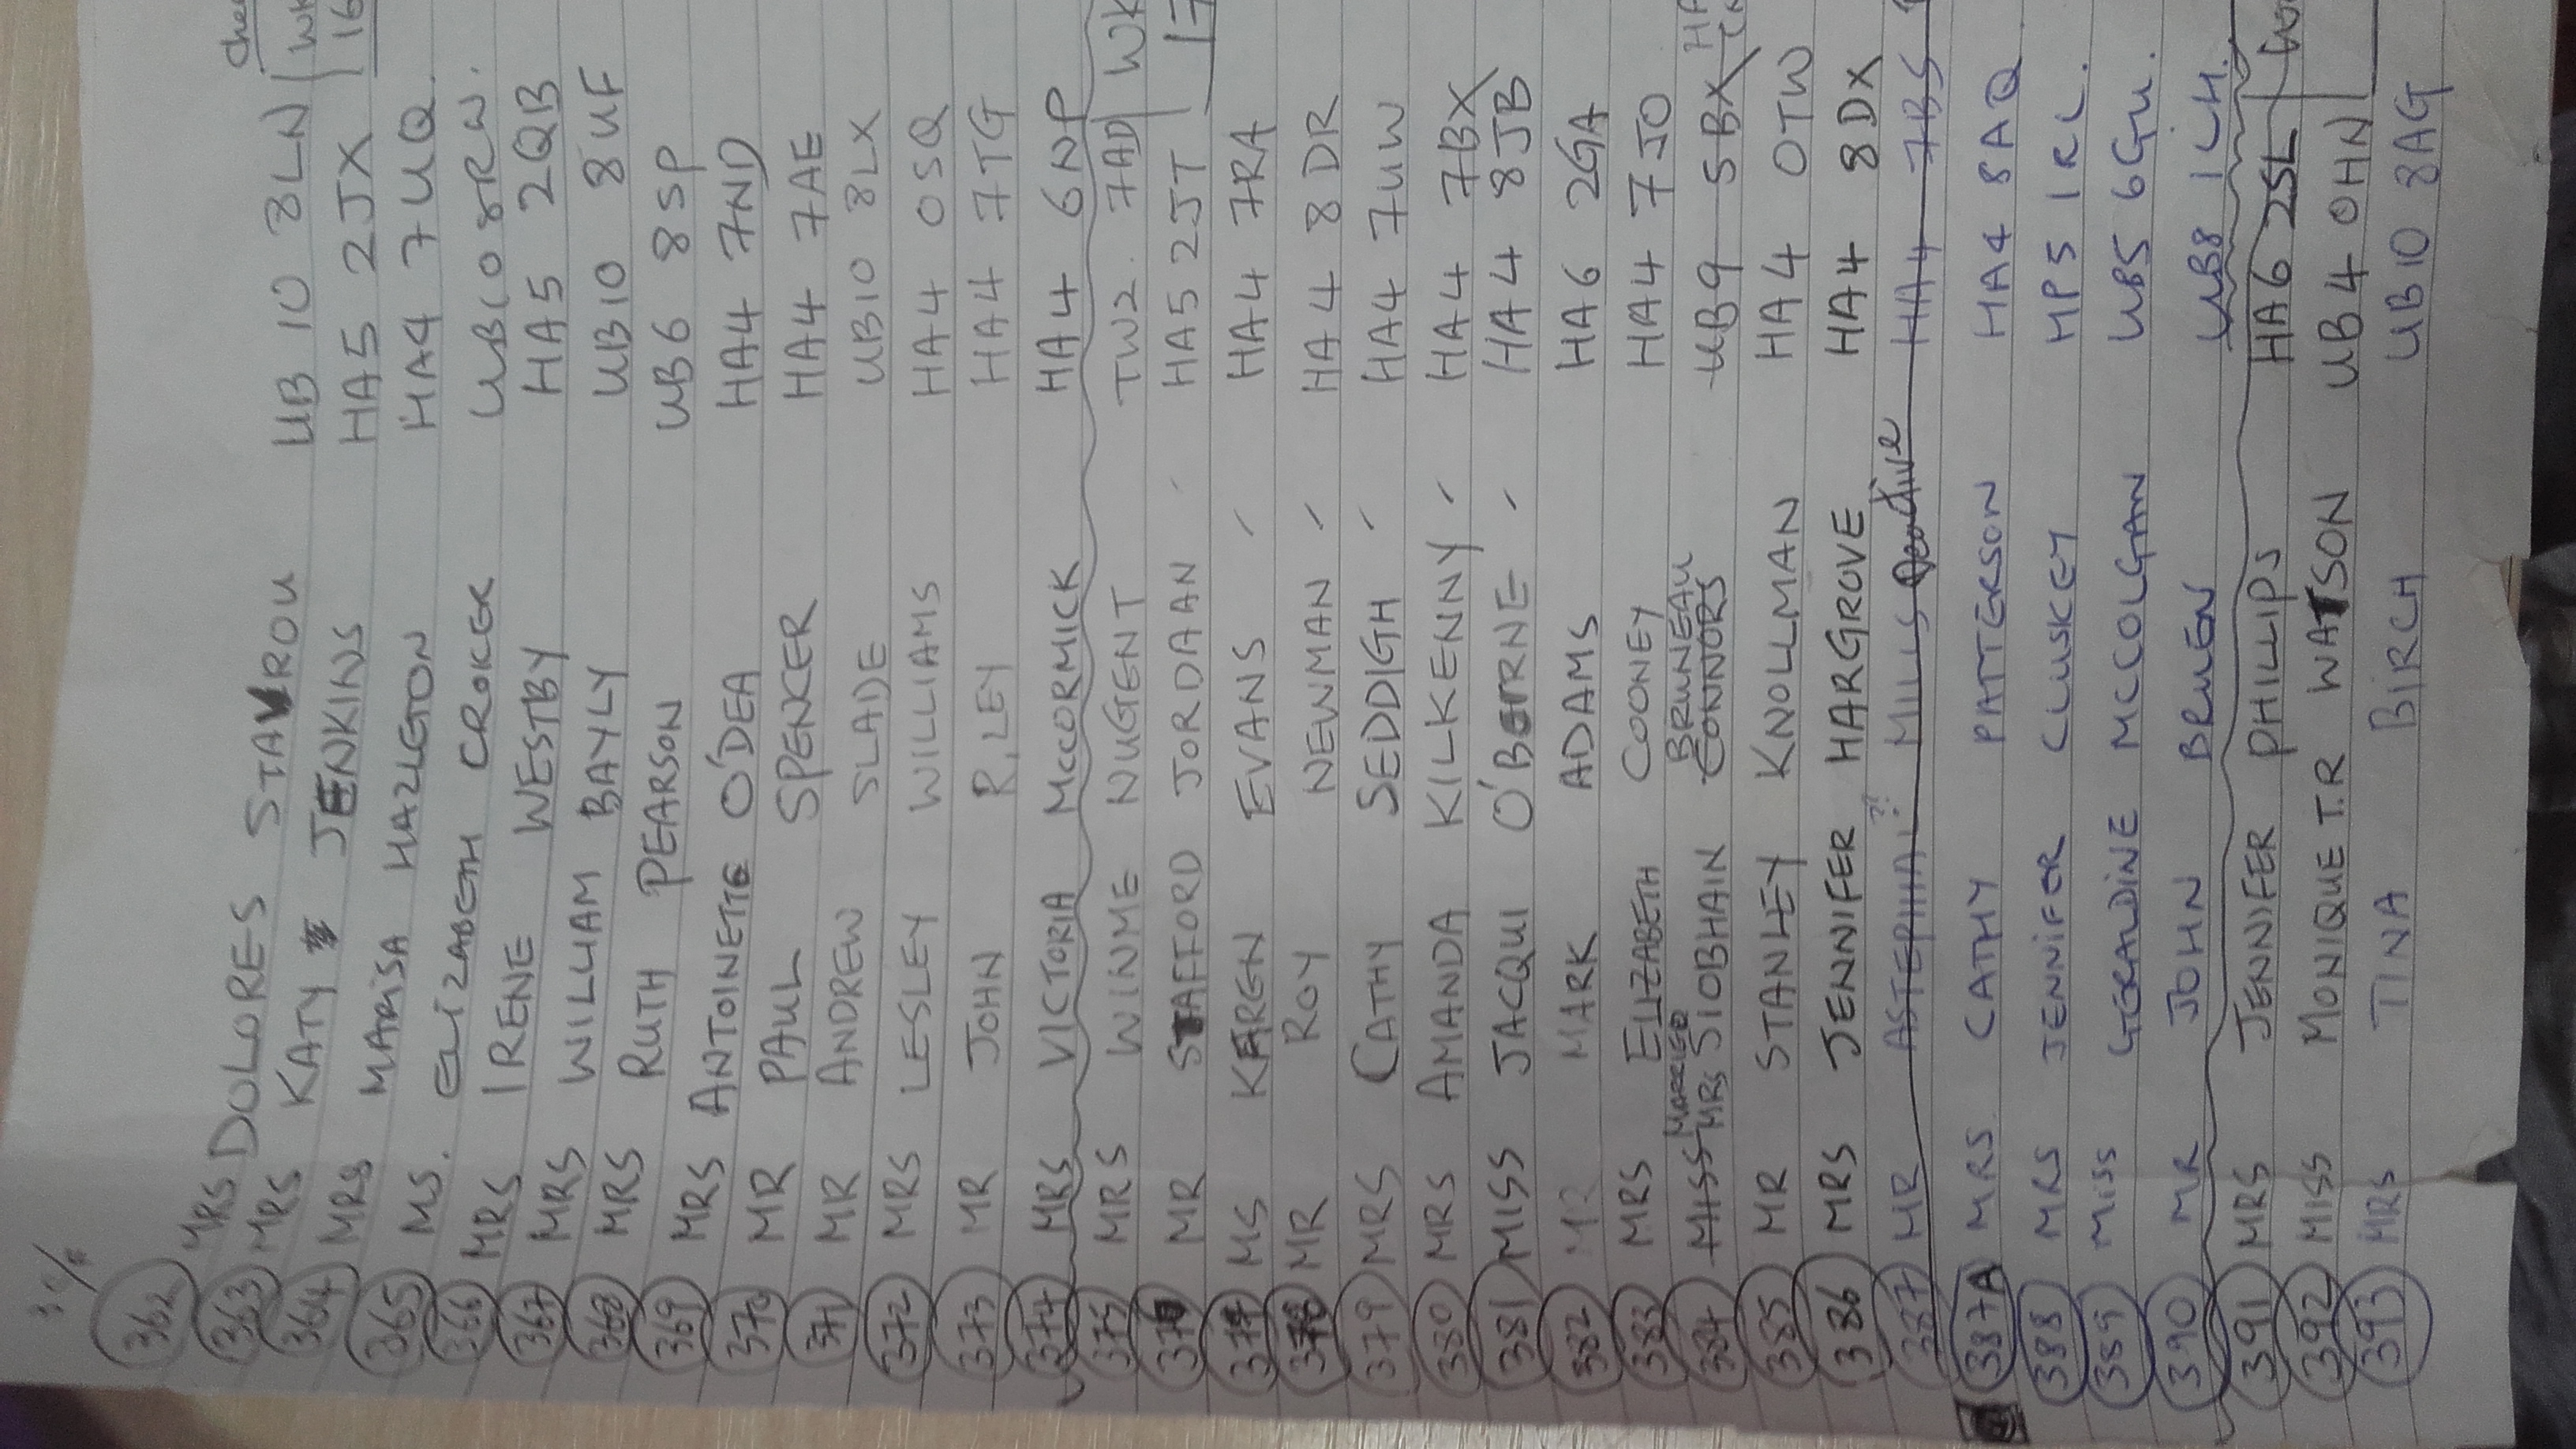 362 MRS DOLORES STAVROU UB 10 8LN
363 MRS KATY JENKINS HA5 2JX 16
364 MRS MARISA HAZLETON HA4 7UQ.
365 MS. ELIZABETH CROKER UB10 8RW.
366 MRS IRENE WESTBY HA5 2QB
367 MRS WILLIAM BAYLY UB10 8UF
368 MRS RUTH PEARSON UB6 8SP
369 MRS ANTOINETTE O'DEA HA4 7ND
370 MR PAUL SPENCER HA4 7AE
371 MR ANDREW SLADE UB10 8LX
372 MRS LESLEY WILLIAMS HA4 0SQ
373 MR JOHN RILEY HA4 7TG
374 MRS VICTORIA McCORMICK HA4 6NP
375 MRS WINME NUGENT TW2. 7AD WK
376 MR STAFFORD JORDAAN HA5 2JT 17
377 MS KAREN EVANS HA4 7RA
378 MR ROY NEWMAN HA4 8DR
379 MRS CATHY SEDDIGH HA4 7UW
380 MRS AMANDA KILKENNY HA4 7BX
381 MISS JACQUI O'BEIRNE HA4 8JB
382 MR MARK ADAMS HA6 2GA
383 MRS ELIZABETH COONEY HA4 7JO
MARRIED BRUNEAU
384 MISS MRS SIOBHAIN CONNORS UB9 5BX
385 MR STANLEY KNOLLMAN HA4 0TW
386 MRS JENNIFER HARGROVE HA4 8DX
387 MR ?? MILLS Deactive HA4 7BS
387A MRS CATHY PATTERSON HA4 8AQ
388 MRS JENNIFER CLUSKEY HP5 1RL.
389 MISS GERALDINE MCCOLGAN UB5 6GU.
390 MR JOHN BRUEN UB8 1LH.
391 MRS JENNIFER PHILLIPS HA6 2SL
392 MISS MONIQUE T.R WATSON UB4 0HN
393 MRS TINA BIRCH UB10 8AG